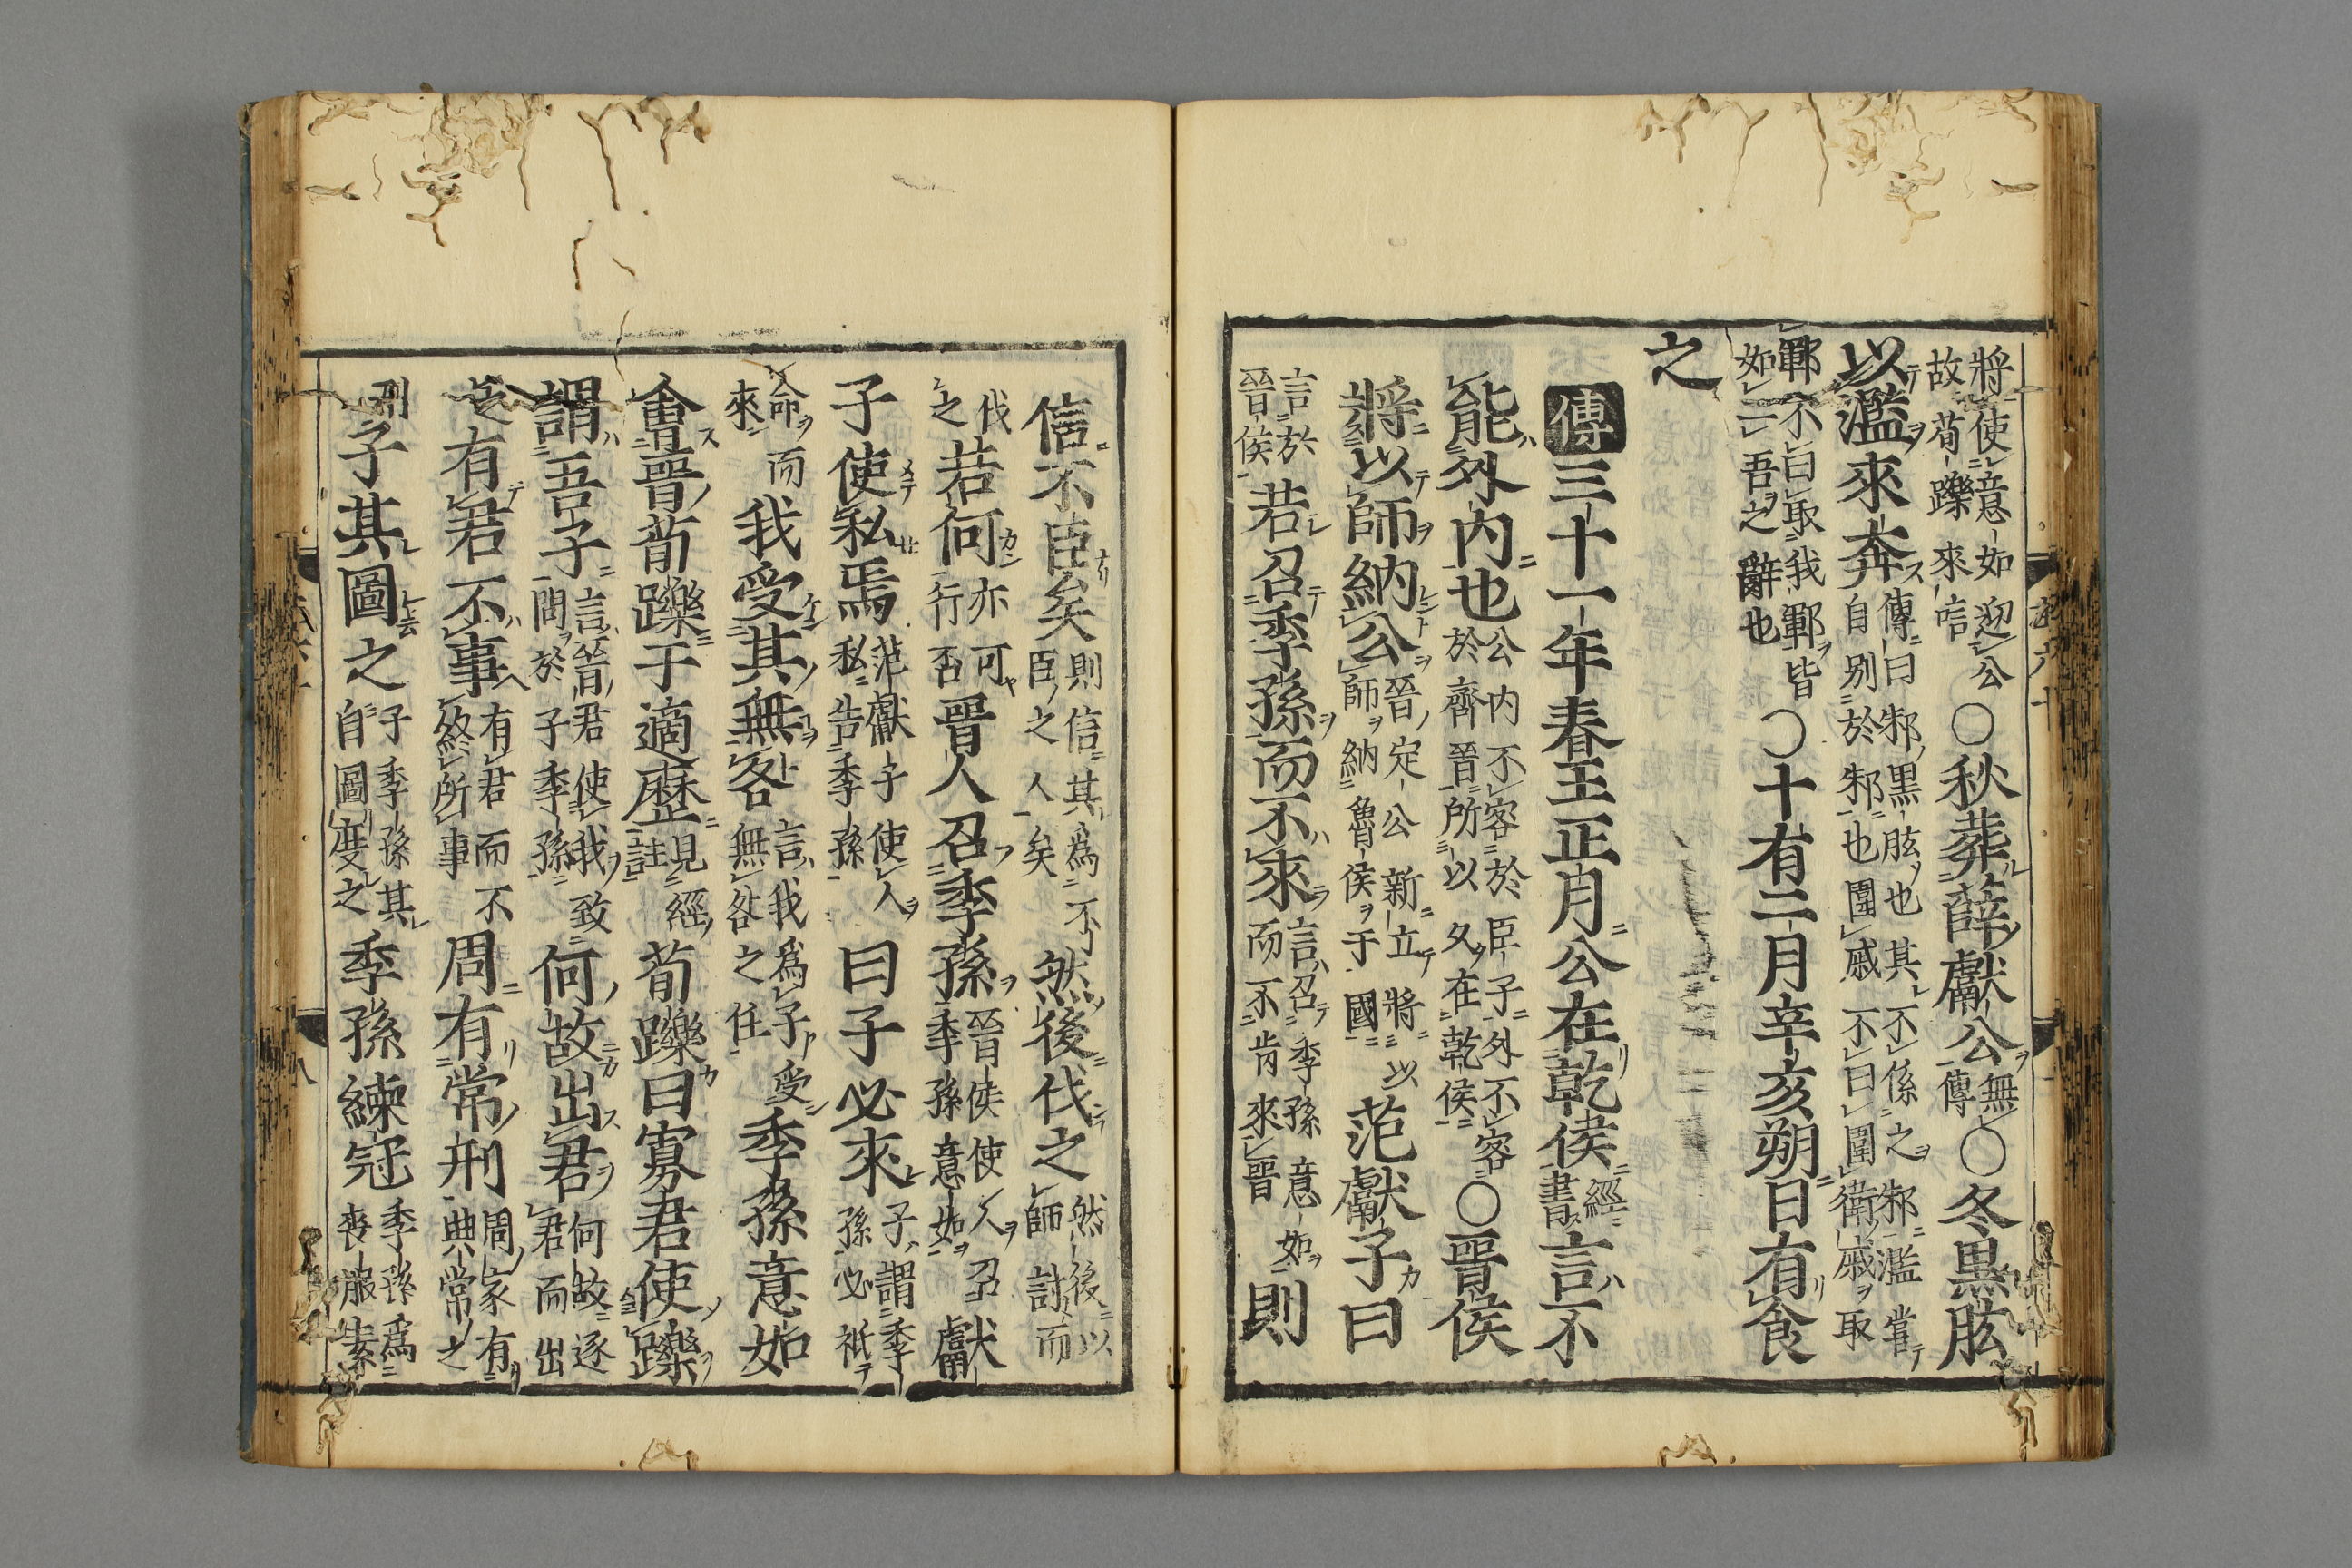 將使意如迎公故荀躒來唁〇秋葬薛獻公無傳〇冬黑肱
以濫來奔傳曰邾黑肱也其不係之邾濫嘗自别於邾也圍戚不曰圍衛戚取
鄆不曰取我鄆皆如一吾之辭也〇十有二月辛亥朔日有食
之
傳三十一年春王正月公在乾侯經書言不
能外内也公内不容於臣子外不容於齊晉所以久在乾侯〇晉侯
將以師納公晉定公新立將以師納魯侯于國范獻子曰
言於晉侯若召季孫而不來言召季孫意如而不肯來晉則
信不臣矣則信其爲不臣之人矣然後伐之然後以師討而
伐之若何亦可行否晉人召季孫晉侯使人召季孫意如獻
子使私焉范獻子使人私告季孫曰子必來子謂季孫必祇
命而來我受其無咎言我爲子受無咎之任季孫意如
會晉荀躒于適歷見經註荀躒曰寡君使躒
謂吾子言晉君使我致問於子季孫何故出君何故逐君而出
之有君不事有君而不敘所事周有常刑周家有典常之
刑子其圖之子季孫其自圖度之季孫練冠季孫爲喪服素